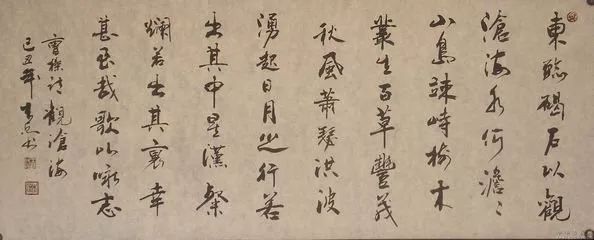 東臨碣石以觀
滄海水何澹〻
山島竦峙樹木
叢生百草豐茂
秋風蕭瑟洪波
湧起日月之行若
出其中星漢燦
爛若出其裏幸
甚至哉歌以詠志
曹操詩觀滄海
己丑年